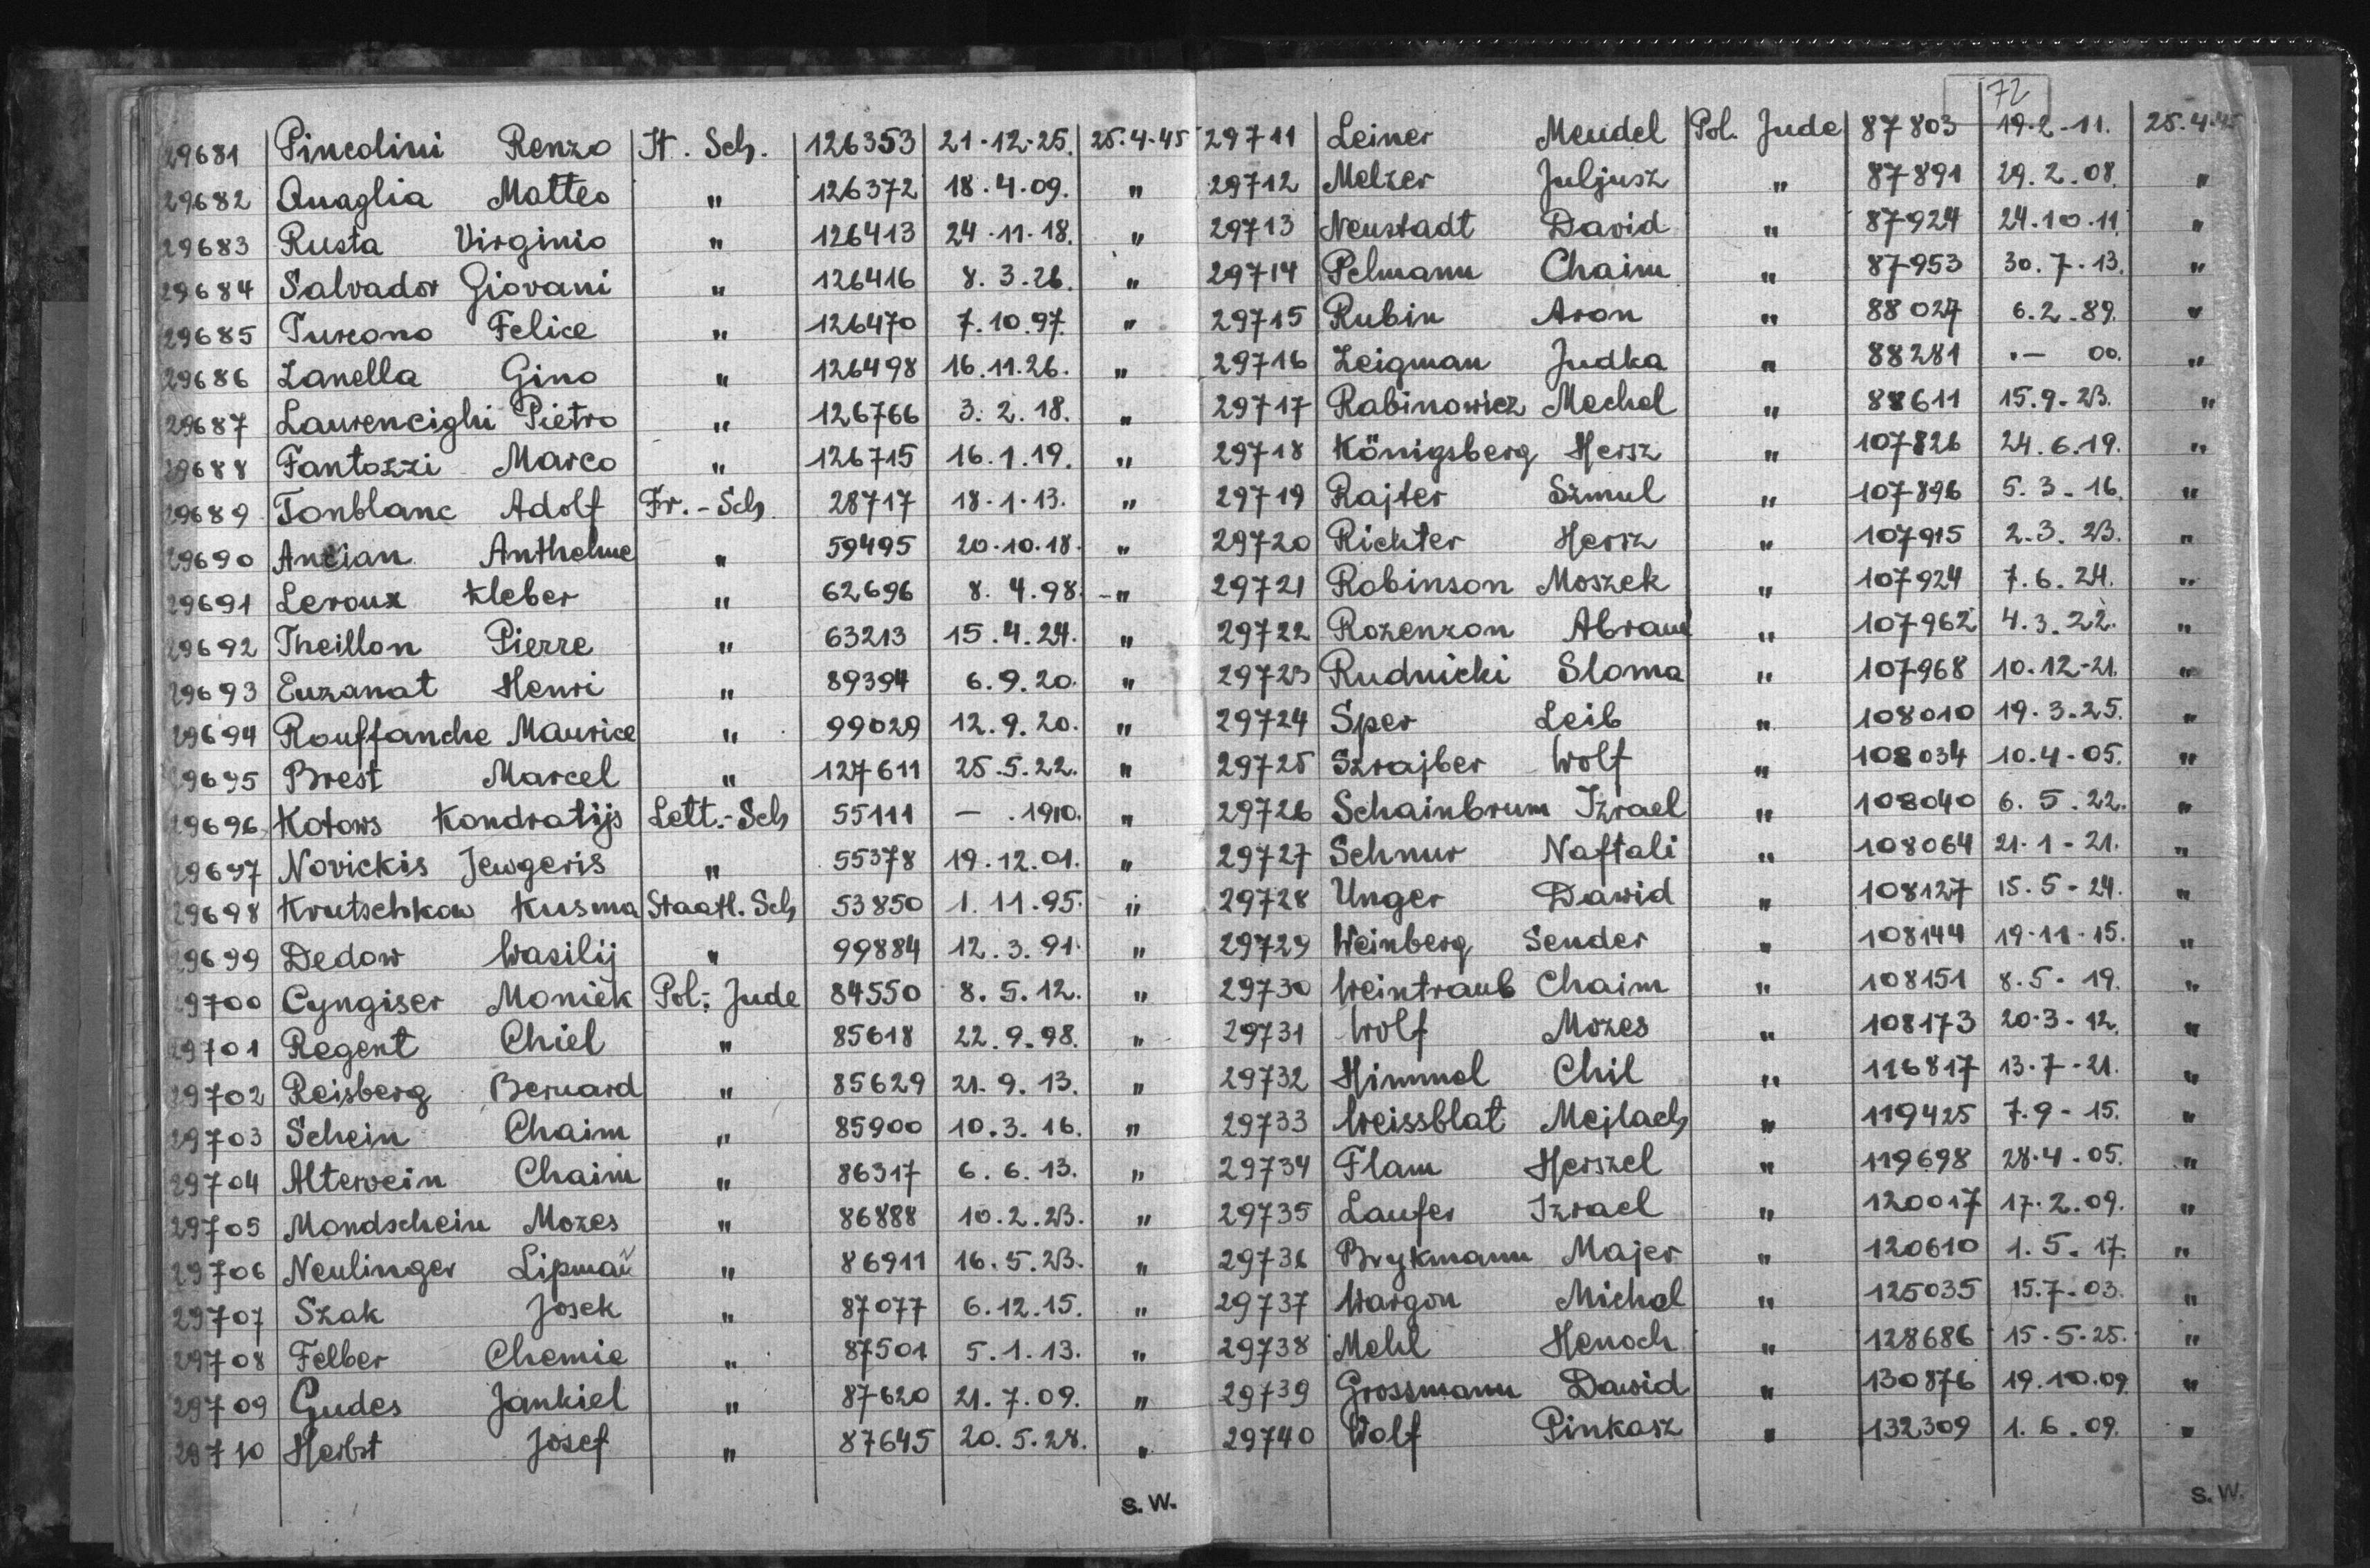 29681 Pincolini Renzo It. Sch. 126353 21.12.25. 25.4.45
29682 Quaglia Matteo " 126372 18.4.09. "
29683 Rusta Virginio " 126413 24.11.18. "
29684 Salvador Giovani " 126416 8.3.26. "
29685 Turcono Felice " 126470 7.10.97. "
29686 Zanella Gino " 126498 16.11.26. "
29687 Laurencighi Pietro " 126766 3.2.18. "
29688 Fantozzi Marco " 126715 16.1.19. "
29689 Tonblanc Adolf Fr.-Sch. 28717 18.1.13. "
29690 Ancian Anthelme " 59495 20.10.18. "
29691 Leroux Kleber " 62696 8.4.98. -"
29692 Theillon Pierre " 63213 15.4.24. "
29693 Euzanat Henri " 89394 6.9.20. "
29694 Rouffanche Maurice " 99029 12.9.20. "
29695 Brest Marcel " 127611 25.5.22. "
29696 Kotows Kondratijs Lett.-Sch 55111 - .1910. "
29697 Novickis Jewgeris " 55378 19.12.01. "
29698 Krutschkow Kusma Staatl. Sch 53850 1.11.95. "
29699 Dedow Wasilij " 99884 12.3.91. "
29700 Cyngiser Moniek Pol. Jude 84550 8.5.12. "
29701 Regent Chiel " 85618 22.9.98. "
29702 Reisberg Bernard " 85629 21.9.13. "
29703 Schein Chaim " 85900 10.3.16. "
29704 Alterwein Chaim " 86317 6.6.13. "
29705 Mondschein Mozes " 86888 10.2.23. "
29706 Neulinger Lipman " 86911 16.5.23. "
29707 Szak Josek " 87077 6.12.15. "
29708 Felber Chemie " 87501 5.1.13. "
29709 Gudes Jankiel " 87620 21.7.09. "
29710 Herbst Josef " 87645 20.5.28. "
S.W.
72
29711 Leiner Mendel Pol. Jude 87803 19.2.11. 25.4.45
29712 Melzer Juljusz " 87891 29.2.08. "
29713 Neustadt David " 87924 24.10.11. "
29714 Pelmann Chaim " 87953 30.7.13. "
29715 Rubin Aron " 88027 6.2.89. "
29716 Zeigman Judka " 88281 .- 00. "
29717 Rabinowicz Mechel " 88611 15.9.23. "
29718 Königsberg Hersz " 107826 24.6.19. "
29719 Rajter Szmul " 107896 5.3.16. "
29720 Richter Hersz " 107915 2.3.23. "
29721 Robinson Moszek " 107924 7.6.24. "
29722 Rozenzon Abram " 107962 4.3.22. "
29723 Rudnicki Sloma " 107968 10.12-21. "
29724 Sper Leib " 108010 19.3.25. "
29725 Szrajber Wolf " 108034 10.4.05. "
29726 Schainbrum Izrael " 108040 6.5.22. "
29727 Schnur Naftali " 108064 21.1-21. "
29728 Unger Dawid " 108127 15.5-24. "
29729 Weinberg Sender " 108144 19.11.15. "
29730 Weintraub Chaim " 108151 8.5-19. "
29731 Wolf Mozes " 108173 20.3-12. "
29732 Himmel Chil " 116817 13.7-21. "
29733 Weissblat Mejlach " 119425 7.9-15. "
29734 Flam Herszel " 119698 28.4.05. "
29735 Laufer Izrael " 120017 17.2.09. "
29736 Brykmann Majer " 120610 1.5.17. "
29737 Wargon Michal " 125035 15.7.03. "
29738 Mehl Henoch " 128686 15.5.25. "
29739 Grossmann Dawid " 130876 19.10.09 "
29740 Wolf Pinkasz " 132309 1.6.09. "
S.W.